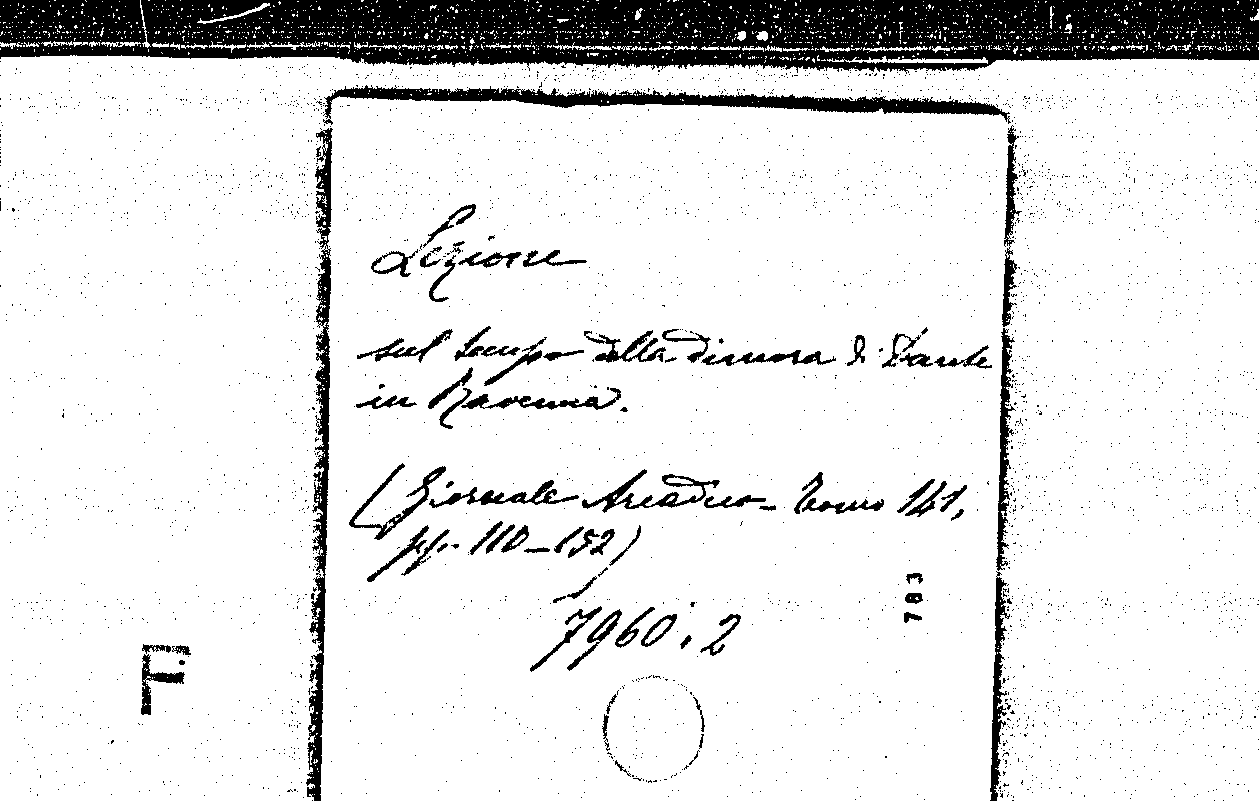 Lezione
sul tempo della dimora di Dante
in Ravenna.
(Giornale Arcadico - Tomo 141,
pp. 110-152)
7960.2
783
F